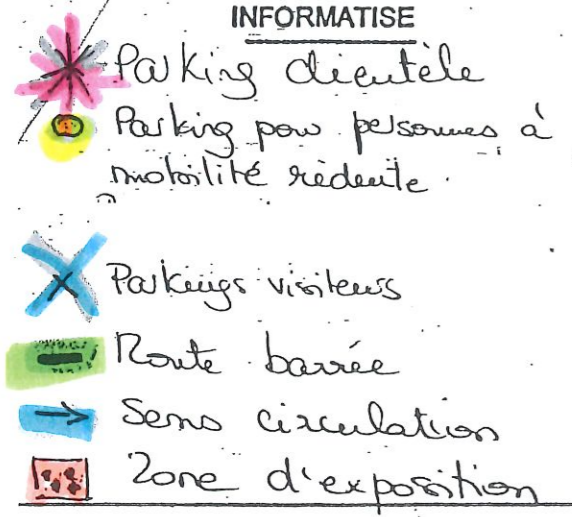 INFORMATISE
Parking clientèle
Parking pour personnes à
mobilité réduite.
Parkings visiteurs
Route barrée
Sens circulation
Zone d'exposition